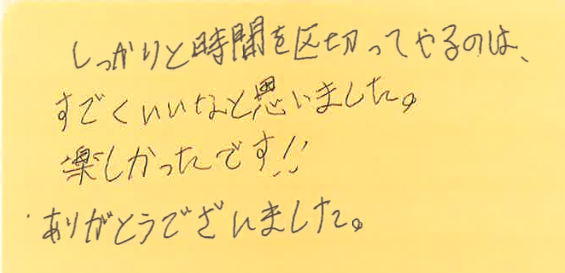 しっかりと時間を区切ってやるのは、
すごくいいなと思いました。
楽しかったです!!
ありがとうございました。